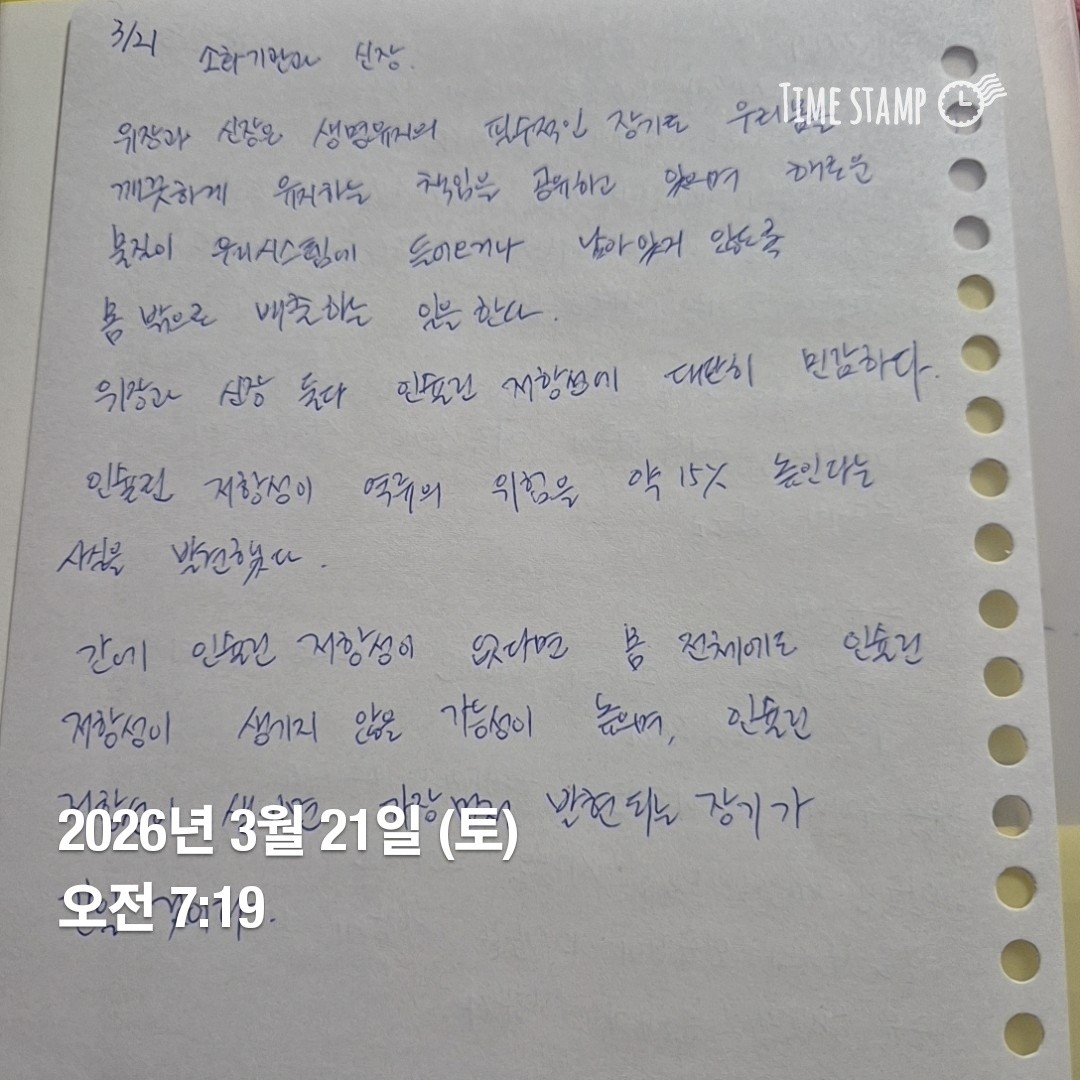 3/21 소화기관과 신장.
TIME STAMP
위장과 신장은 생명유지의 필수적인 장기로 우리몸을
깨끗하게 유지하는 책임을 공유하고 있으며 해로운
물질이 우리시스템에 들어오거나 남아있지 않도록
몸 밖으로 배출하는 일을 한다.
위장과 신장 둘다 인슐린 저항성에 대단히 민감하다.
인슐린 저항성이 역류의 위험을 약 15% 높인다는
사실을 발견했다.
간에 인슐린 저항성이 없다면 몸 전체에도 인슐린
저항성이 생기지 않을 가능성이 높으며, 인슐린
발현되는 장기가
2026년 3월 21일 (토)
오전 7:19